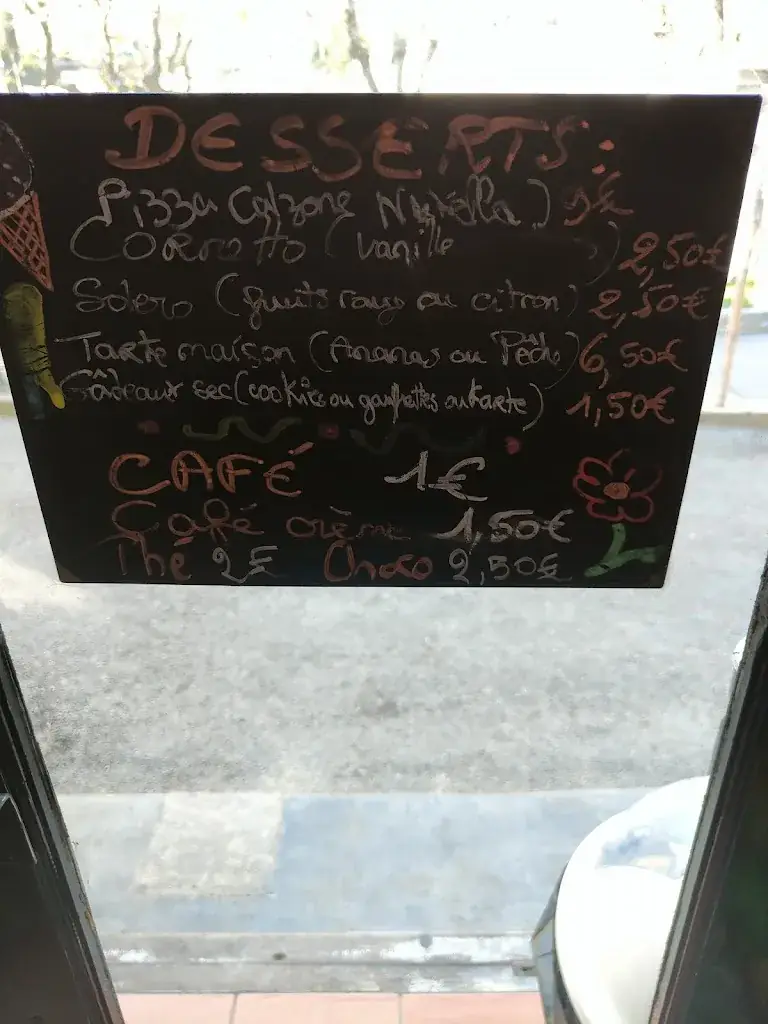 DESSERTS:
Pizza Calzone Nutella) 9€
CORNETTO (Vanille ) 2,50€
Solero (fruits rouges ou citron) 2,50€
Tarte maison (Ananas ou Pêche) 6,50€
Gâteaux sec (cookies ou gaufrettes ou tarte) 1,50€
CAFÉ 1€
Café crème 1,50€
Thé 2€ Choco 2,50€